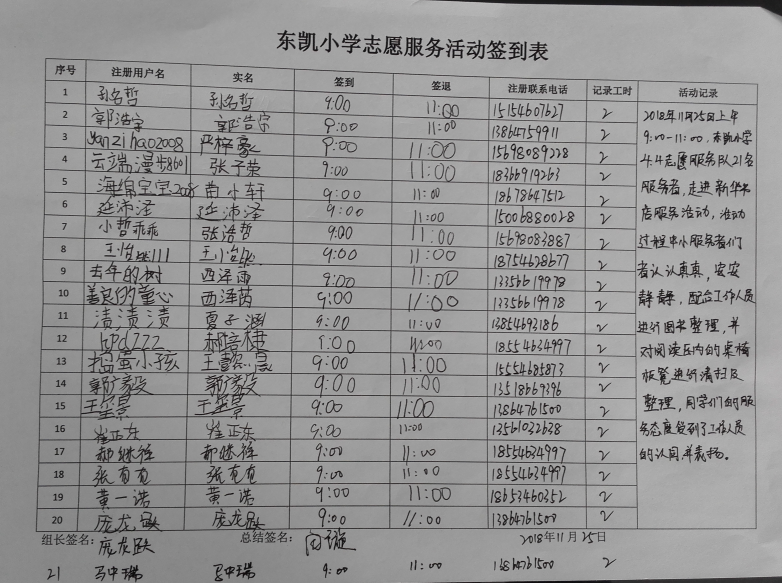 东凯小学志愿服务活动签到表
序号 注册用户名 实名 签到 签退 注册联系电话 记录工时 活动记录
1 孙名哲 孙名哲 9:00 11:00 15154607627 2
2 郭浩宇 郭浩宇 9:00 11:00 13864759911 2
3 yanzihao2008 严梓豪 9:00 11:00 15698089228 2
4 云端漫步8601 张子荣 9:00 11:00 18366919263 2
5 海绵宝宝2008 苗小轩 9:00 11:00 18678647512 2
6 延沛泽 延沛泽 9:00 11:00 15006880028 2
7 小哲乖乖 张浩哲 9:00 11:00 15698083887 2
8 9:00 11:00 18754628677 2
9 去年的树 西泽雨 9:00 11:00 13356619978 2
10 善良的童心 西泽茜 9:00 11:00 13356619978 2
11 渍渍渍 夏子涵 9:00 11:00 13854693186 2
12 hpd222 9:00 11:00 18554634997 2
13 捣蛋小孩 9:00 11:00 15554685873 2
14 郭家毅 郭家毅 9:00 11:00 13518669396 2
15 9:00 11:00 13864761500 2
16 崔正东 崔正东 9:00 11:00 13561032638 2
17 郝继程 郝继程 9:00 11:00 18554634997 2
18 张有有 张有有 9:00 11:00 18554634997 2
19 黄一诺 黄一诺 9:00 11:00 18653460352 2
20 庞龙跃 庞龙跃 9:00 11:00 13864761500 2
2018年11月25日上午
9:00-11:00，东凯小学
4.4志愿服务队21名
服务者，走进新华书
店服务活动，活动
过程中小服务者们
者认认真真，安安
静静，配合工作人员
进行图书整理，并
对阅读区内的桌椅
板凳进行清扫及
整理，同学们的服
务态度受到了工作人员
的认同并表扬。
组长签名： 总结签名： 2018年11月25日
庞龙跃
21 马中瑞 马中瑞 9:00 11:00 13864761500 2